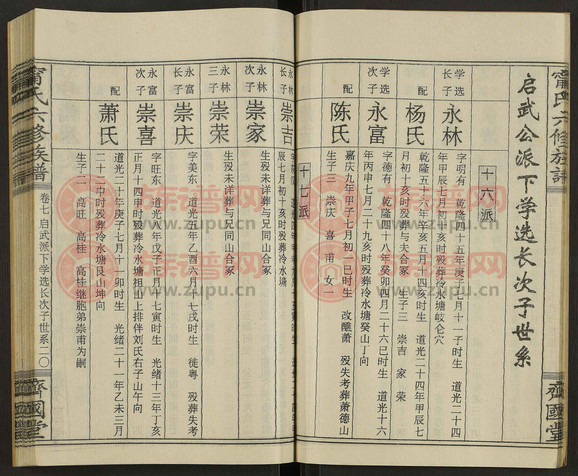 甯氏六修族譜
齊國堂
启武公派下学选长次子世系
十六派
学选长子 永林
字明有 乾隆四十五年庚子七月十一子时生 道光二十四年甲辰七月初十亥时殁葬冷水塘峧仑穴
配 杨氏
乾隆五十六年辛亥五月十四亥时生 道光二十四年甲辰七月初十亥时殁葬与夫合冢 生子三 崇吉 家 荣
学选次子 永富
字德有 乾隆四十八年癸卯四月二十六巳时生 道光十六年丙申七月二十九亥时殁葬冷水塘癸山丁向
配 陈氏
嘉庆九年甲子七月初一巳时生 改醮萧 殁失考葬萧德山
生子三 崇庆 喜 甫 女一
十七派
永林长子 崇吉
字
辰七月初十亥时殁葬冷水塘
永林次子 崇家
生殁未详葬与兄同山合冢
永林三子 崇荣
生殁未详葬与兄同山合冢
永富长子 崇庆
字美东 道光五年乙酉六月十七戌时生 徙粤 殁葬失考
永富次子 崇喜
字旺东 道光八年戊子正月十七寅时生 光绪十三年丁亥正月十四申时殁葬冷水塘祖山上排伴刘氏右子山午向
配 萧氏
道光二十年庚子七月十一卯时生 光绪二十一年乙未三月二十一申时殁葬冷水塘艮山坤向
生子二 高旺 高桂 高桂继胞弟崇甫为嗣
甯氏六修族譜
卷七启武派下学选长次子世系二〇
齊國堂
族谱网
www.zupu.cn